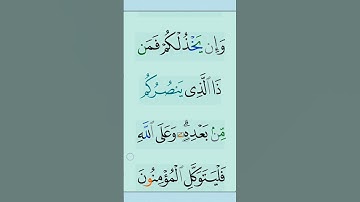 وَإِن يَخْذُلْكُمْ فَمَن
ذَا ٱلَّذِى يَنصُرُكُم
مِّنۢ بَعْدِهِۦ ۗ وَعَلَى ٱللَّهِ
فَلْيَتَوَكَّلِ ٱلْمُؤْمِنُونَ